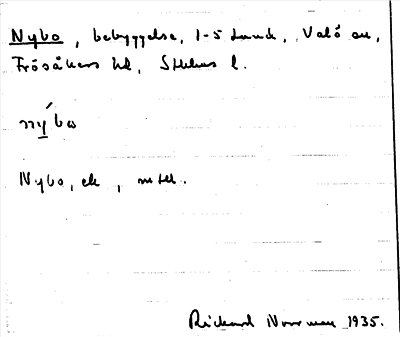 Nybo, bebyggelse, 1-5 Sund, Valö sn,
Frösåkers hd, Sthlms l.
nýbo
Nybo, ek, mtl.
Rickard Norrman 1935.